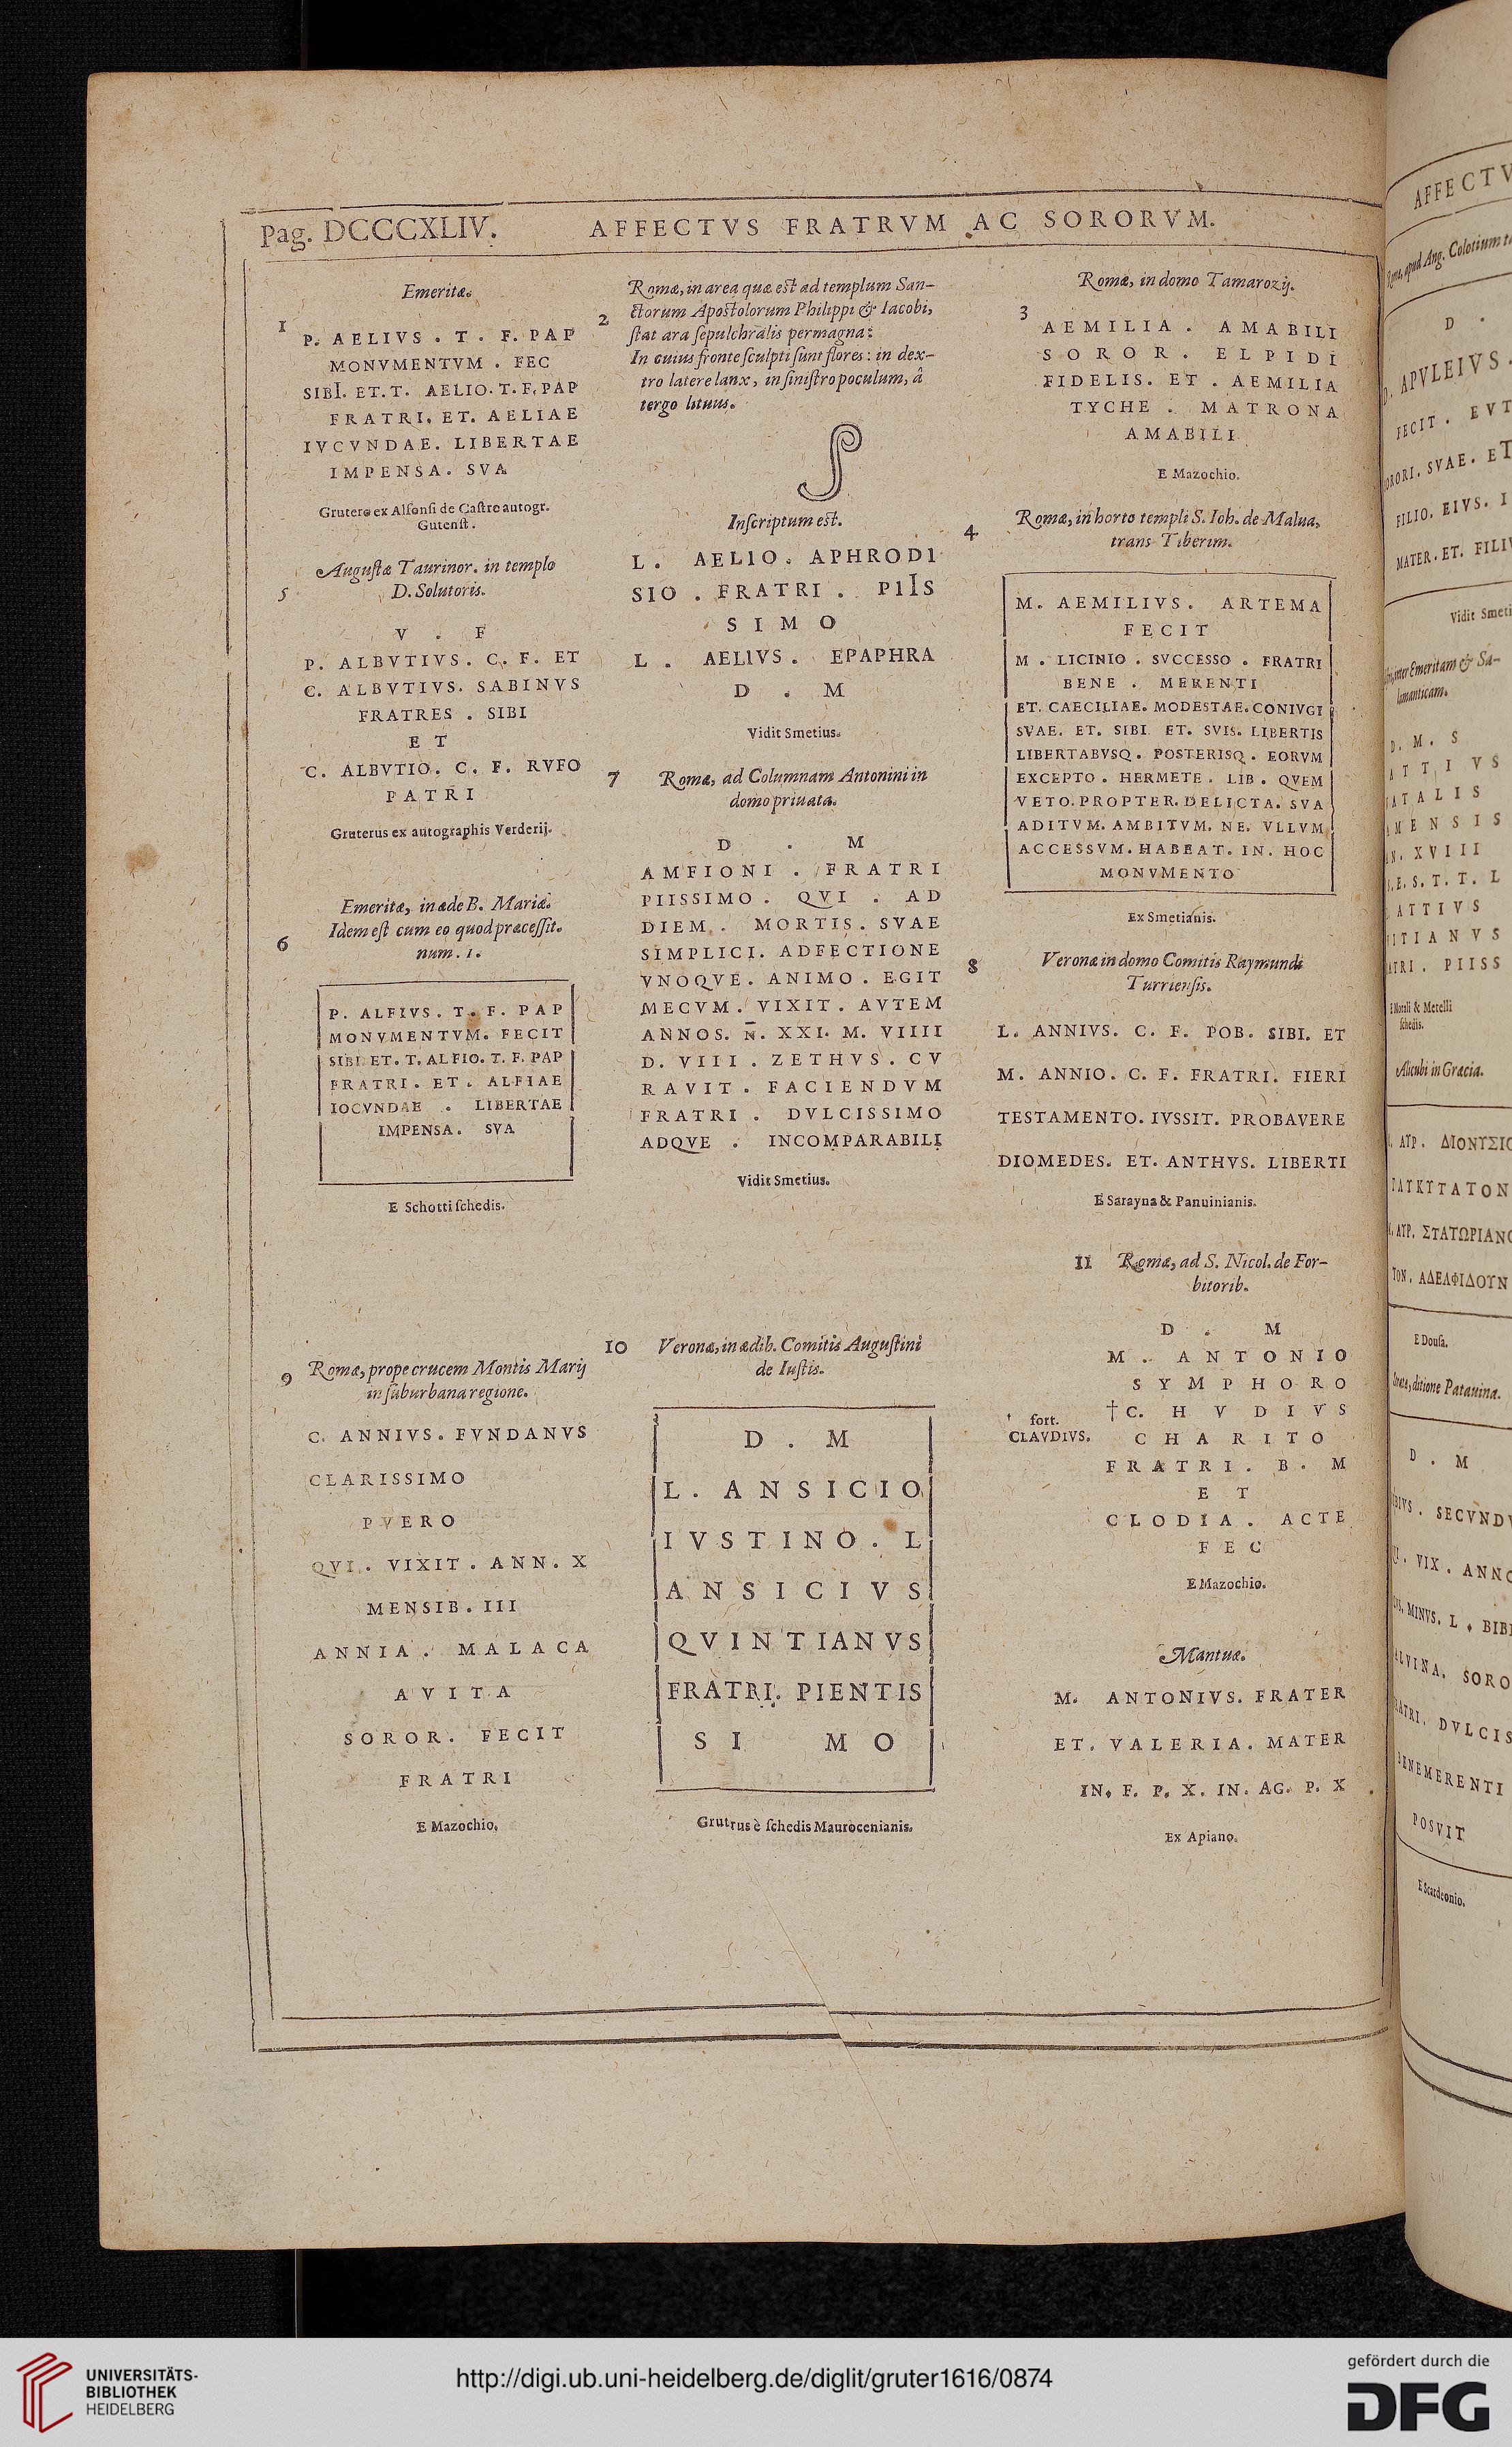 Pag. DCCCXLIV. AFFECTVS FRATRVM AC SORORVM.
Emeritæ.
1
P. AELIVS . T . F. PAP
MONVMENTVM . FEC
SIBI. ET. T. AELIO. T. F. PAP
FRATRI. ET. AELIAE
IVCVNDAE. LIBERTAE
IMPENSA. SVA
Grutero ex Alfonsi de Castro autogr.
Gutenst.
2
Romæ, in area quæ est ad templum San-
ctorum Apostolorum Philippi & Iacobi,
stat ara sepulchralis permagna:
In cuius fronte sculpti sunt flores: in dex-
tro latere lanx, in sinistro poculum, â
tergo lituus.
Inscriptum est.
L . AELIO . APHRODI
SIO . FRATRI . PIIS
SIMO
L . AELIVS . EPAPHRA
D . M
Vidit Smetius.
3
Romæ, in domo Tamarozij.
AEMILIA . AMABILI
SOROR . ELPIDI
FIDELIS. ET . AEMILIA
TYCHE . MATRONA
AMABILI
E Mazochio.
4
Romæ, in horto templi S. Ioh. de Malua,
trans Tiberim.
M. AEMILIVS. ARTEMA
FECIT
M . LICINIO . SVCCESSO . FRATRI
BENE . MERENTI
ET. CAECILIAE. MODESTAE. CONIVGI
SVAE. ET. SIBI ET. SVIS. LIBERTIS
LIBERTABVSQ. POSTERISQ. EORVM
EXCEPTO . HERMETE . LIB . QVEM
VETO. PROPTER. DELICTA. SVA
ADITVM. AMBITVM. NE. VLLVM
ACCESSVM. HABEAT. IN. HOC
MONVMENTO
Ex Smetianis.
5
Augustæ Taurinor. in templo
D. Solutoris.
V . F
P. ALBVTIVS. C. F. ET
C. ALBVTIVS. SABINVS
FRATRES . SIBI
ET
C. ALBVTIO. C. F. RVFO
PATRI
Gruterus ex autographis Verderij.
6
Emeritæ, in æde B. Mariæ.
Idem est cum eo quod præcessit.
num. 1.
P. ALFIVS. T. F. PAP
MONVMENTVM. FECIT
SIBI. ET. T. ALFIO. T. F. PAP
FRATRI . ET . ALFIAE
IOCVNDAE . LIBERTAE
IMPENSA. SVA
E Schotti schedis.
7
Romæ, ad Columnam Antonini in
domo priuata.
D . M
AMFIONI . FRATRI
PIISSIMO . QVI . AD
DIEM . MORTIS. SVAE
SIMPLICI. ADFECTIONE
VNOQVE. ANIMO . EGIT
MECVM. VIXIT. AVTEM
ANNOS. N̄. XXI. M. VIIII
D. VIII . ZETHVS . CV
RAVIT . FACIENDVM
FRATRI . DVLCISSIMO
ADQVE . INCOMPARABILI
Vidit Smetius.
8
Veronæ in domo Comitis Raymundi
Turriensis.
L. ANNIVS. C. F. POB. SIBI. ET
M. ANNIO. C. F. FRATRI. FIERI
TESTAMENTO. IVSSIT. PROBAVERE
DIOMEDES. ET. ANTHVS. LIBERTI
E Sarayna & Panuinianis.
9
Romæ, prope crucem Montis Marij
in suburbana regione.
C. ANNIVS. FVNDANVS
CLARISSIMO
PVERO
QVI . VIXIT . ANN. X
MENSIB. III
ANNIA . MALACA
AVITA
SOROR. FECIT
FRATRI
E Mazochio.
10
Veronæ, in ædib. Comitis Augustini
de Iustis.
D . M
L. ANSICIO
IVSTINO. L
ANSICIVS
QVINTIANVS
FRATRI. PIENTIS
SI MO
Grutrus è schedis Maurocenianis.
11
Romæ, ad S. Nicol. de For-
bitorib.
D . M
M . ANTONIO
SYMPHORO
† C. HVDIVS
† fort.
CLAVDIVS.
CHARITO
FRATRI. B. M
ET
CLODIA . ACTE
FEC
E Mazochio.
Mantuæ.
M. ANTONIVS. FRATER
ET. VALERIA. MATER
IN. F. P. X. IN. AG. P. X
Ex Apiano.
AFFECTV
D .
APVLEIVS.
FECIT . EVT
SVAE. ET
FILIO. EIVS. I
MATER. ET. FILI
Vidit Smeti
D. M. S
ATTIVS
XVIII
ATTIVS
PIISS
& Metelli
schedis.
Alicubi in Græcia.
ΑΥΡ. ΔΙΟΝΥΣΙΟ
ΣΤΑΤΩΡΙΑΝΟ
ΤΟΝ. ΑΔΕΛΦΙΔΟΥΝ
E Dousa.
ditione Patauina.
D . M
SECVND
VIX. ANNO
MINVS. L . BIBI
SORO
DVLCIS
BENEMERENTI
POSVIT
E Scardeonio.
UNIVERSITÄTS-
BIBLIOTHEK
HEIDELBERG
http://digi.ub.uni-heidelberg.de/diglit/gruter1616/0874
gefördert durch die
DFG